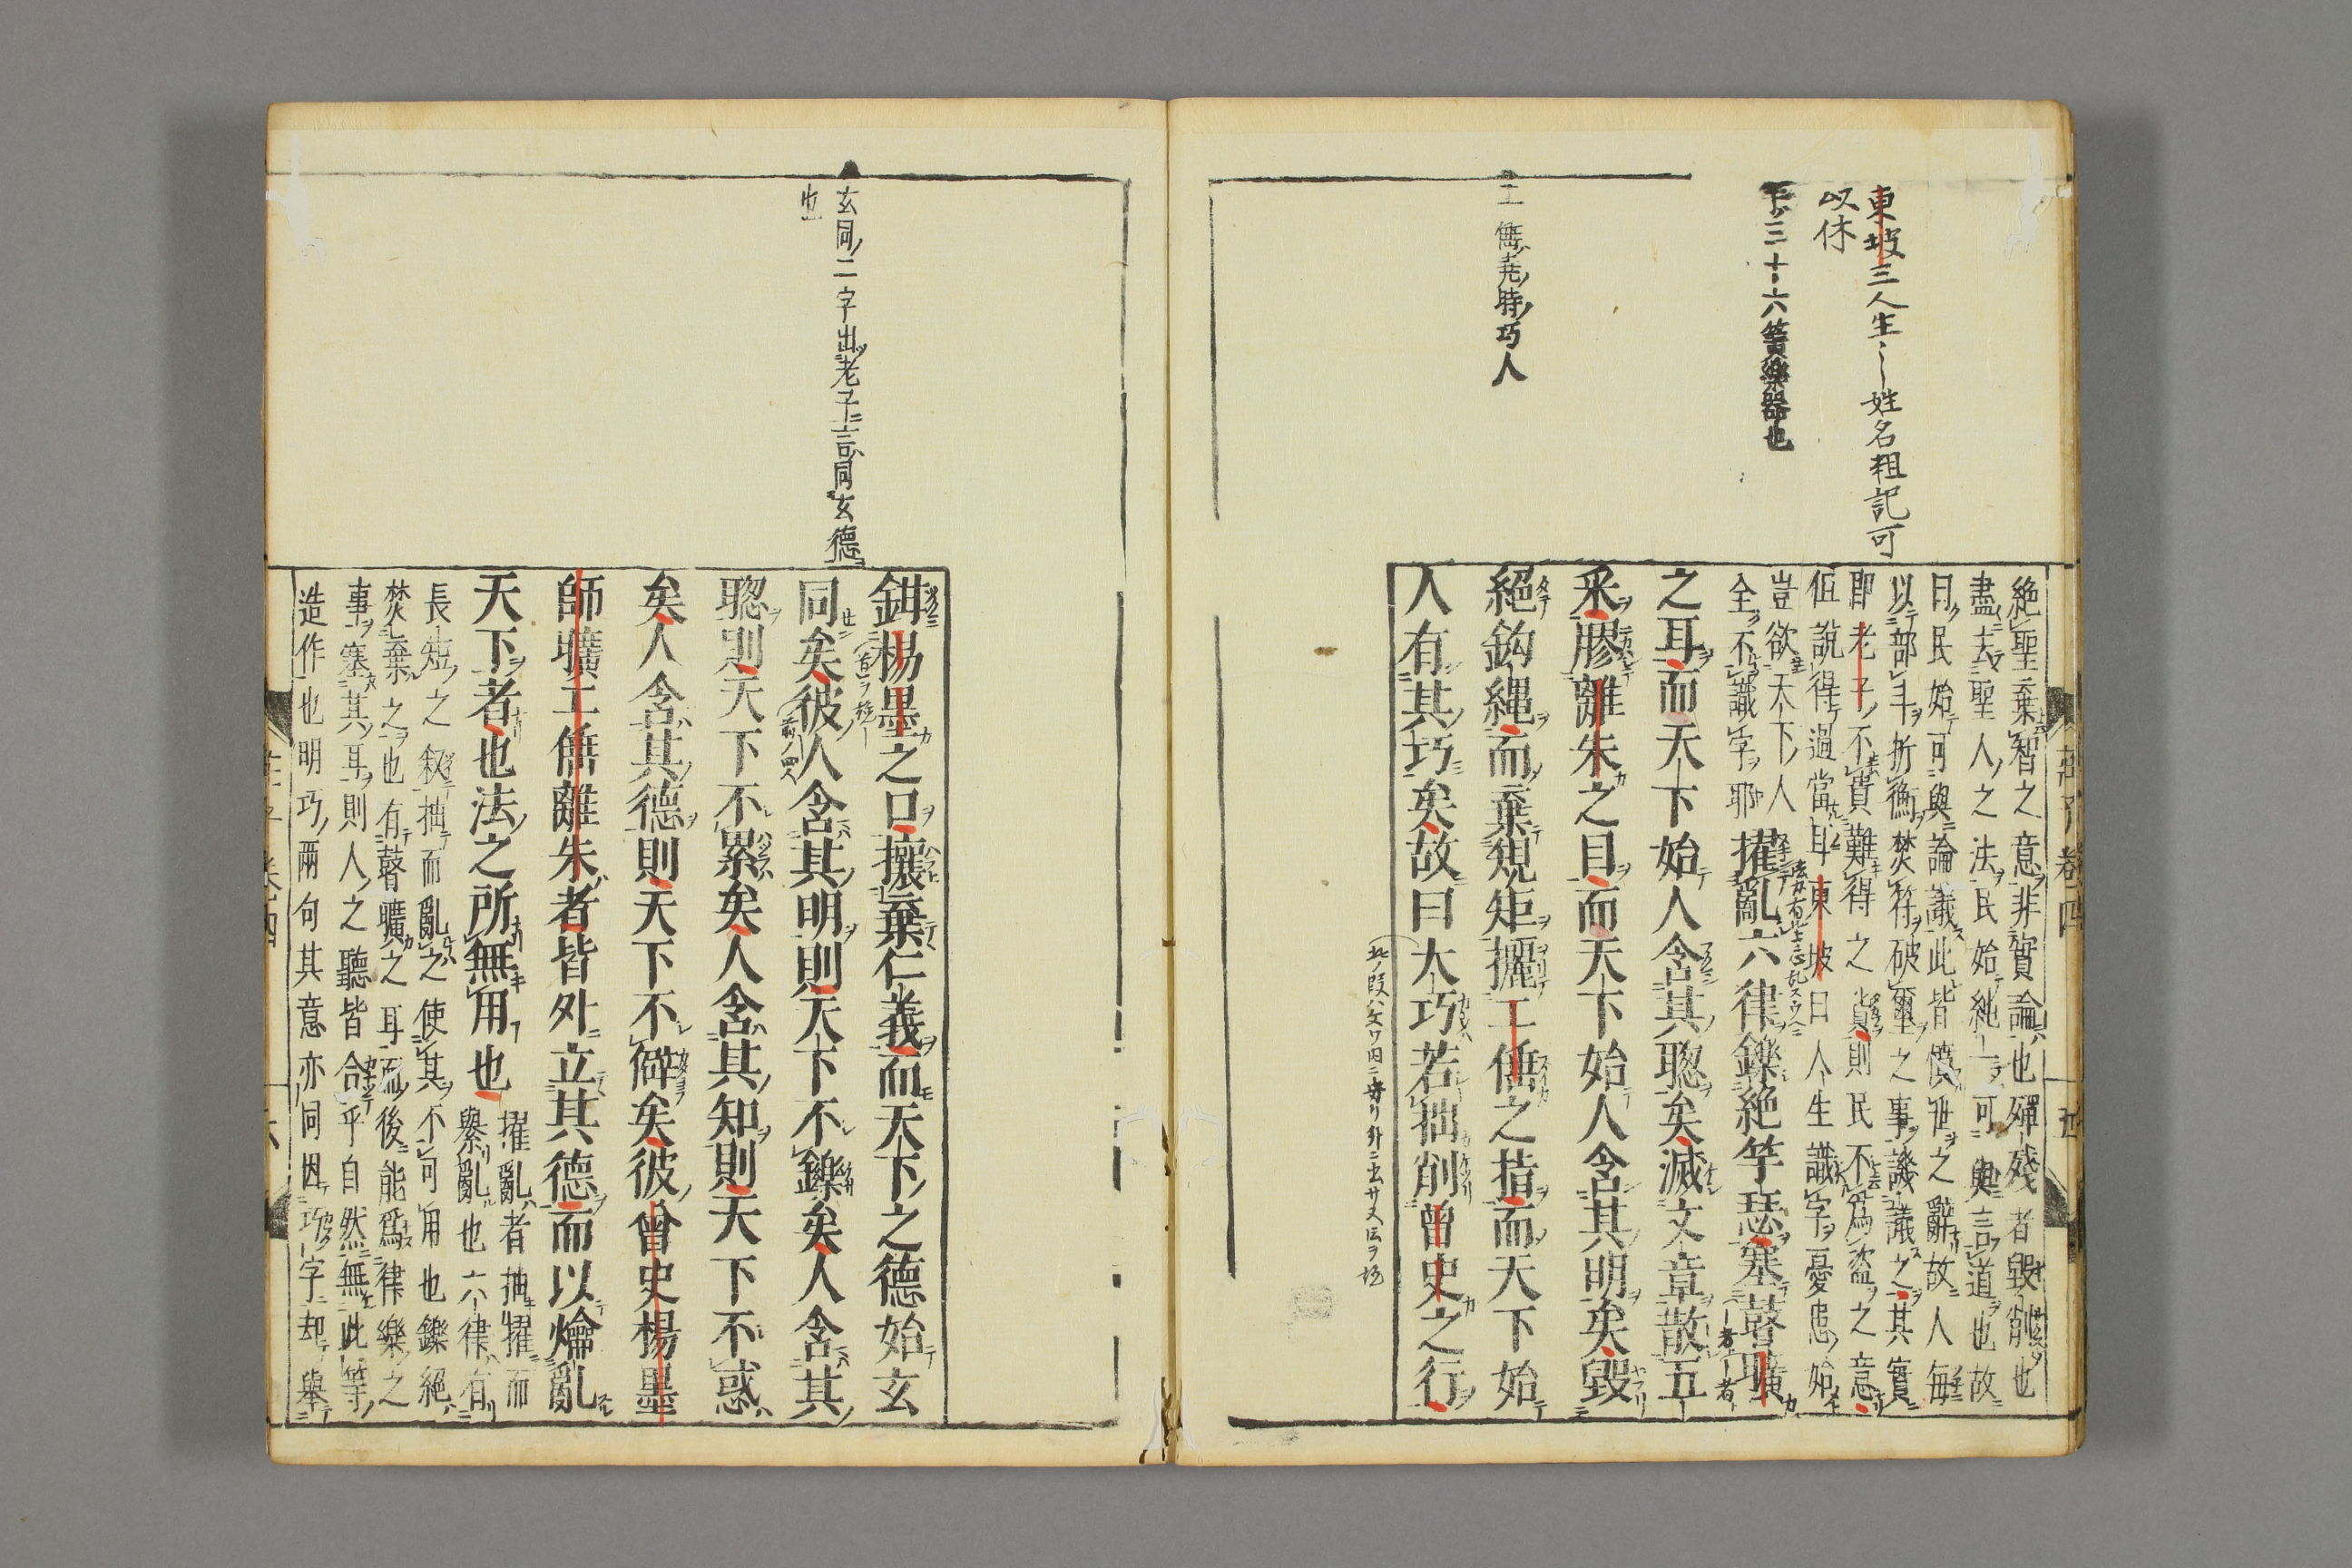 東坡三人生〻姓名粗記可
以休
下三十六簧樂器也
工倕堯時巧人
絶聖棄智之意非實論也殫殘者毀削也
盡去聖人之法民始純一可與言道也故
曰民始可與論議此皆憤世之辭故人毎
以部斗折衡焚符破璽之事譏議之其實
即老子不貴難得之貨則民不為盗之意
但説得過當耳東坡曰人生識字憂患始
豈欲天下人
全不識字耶
擢亂六律鑠絶竽瑟塞瞽曠
之耳而天下始人含其聦矣滅文章散五
采膠離朱之目而天下始人含其明矣毀
絶鈎縄而棄規矩攦工倕之指而天下始
人有其巧矣故曰大巧若拙削曾史之行
莊子 卷四 五
玄同二字出老子言同玄德
也
鉗楊墨之口攘棄仁義而天下之德始玄
同矣彼人含其明則天下不鑠矣人含其
聦則天下不累矣人含其知則天下不惑
矣人含其德則天下不僻矣彼曾史楊墨
師曠工倕離朱者皆外立其德而以爚亂
天下者也法之所無用也
擢亂者抽擢而
纍亂也六律有
長短之叙抽而亂之使其不可用也鑠絶
焚棄之也有瞽曠之耳而後能爲律樂之
事塞其耳則人之聽皆合乎自然無此等
造作也明巧兩句其意亦同因巧字却舉